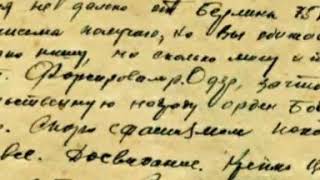 не далеко от Берлина 75
письма получаю, но Вы обижа
но пишу, но сколько могу и п
Форсировал р. Одер, за что
ственную награду орден Бо
Скоро с фашизмом поко
все. Досвидание. Целую